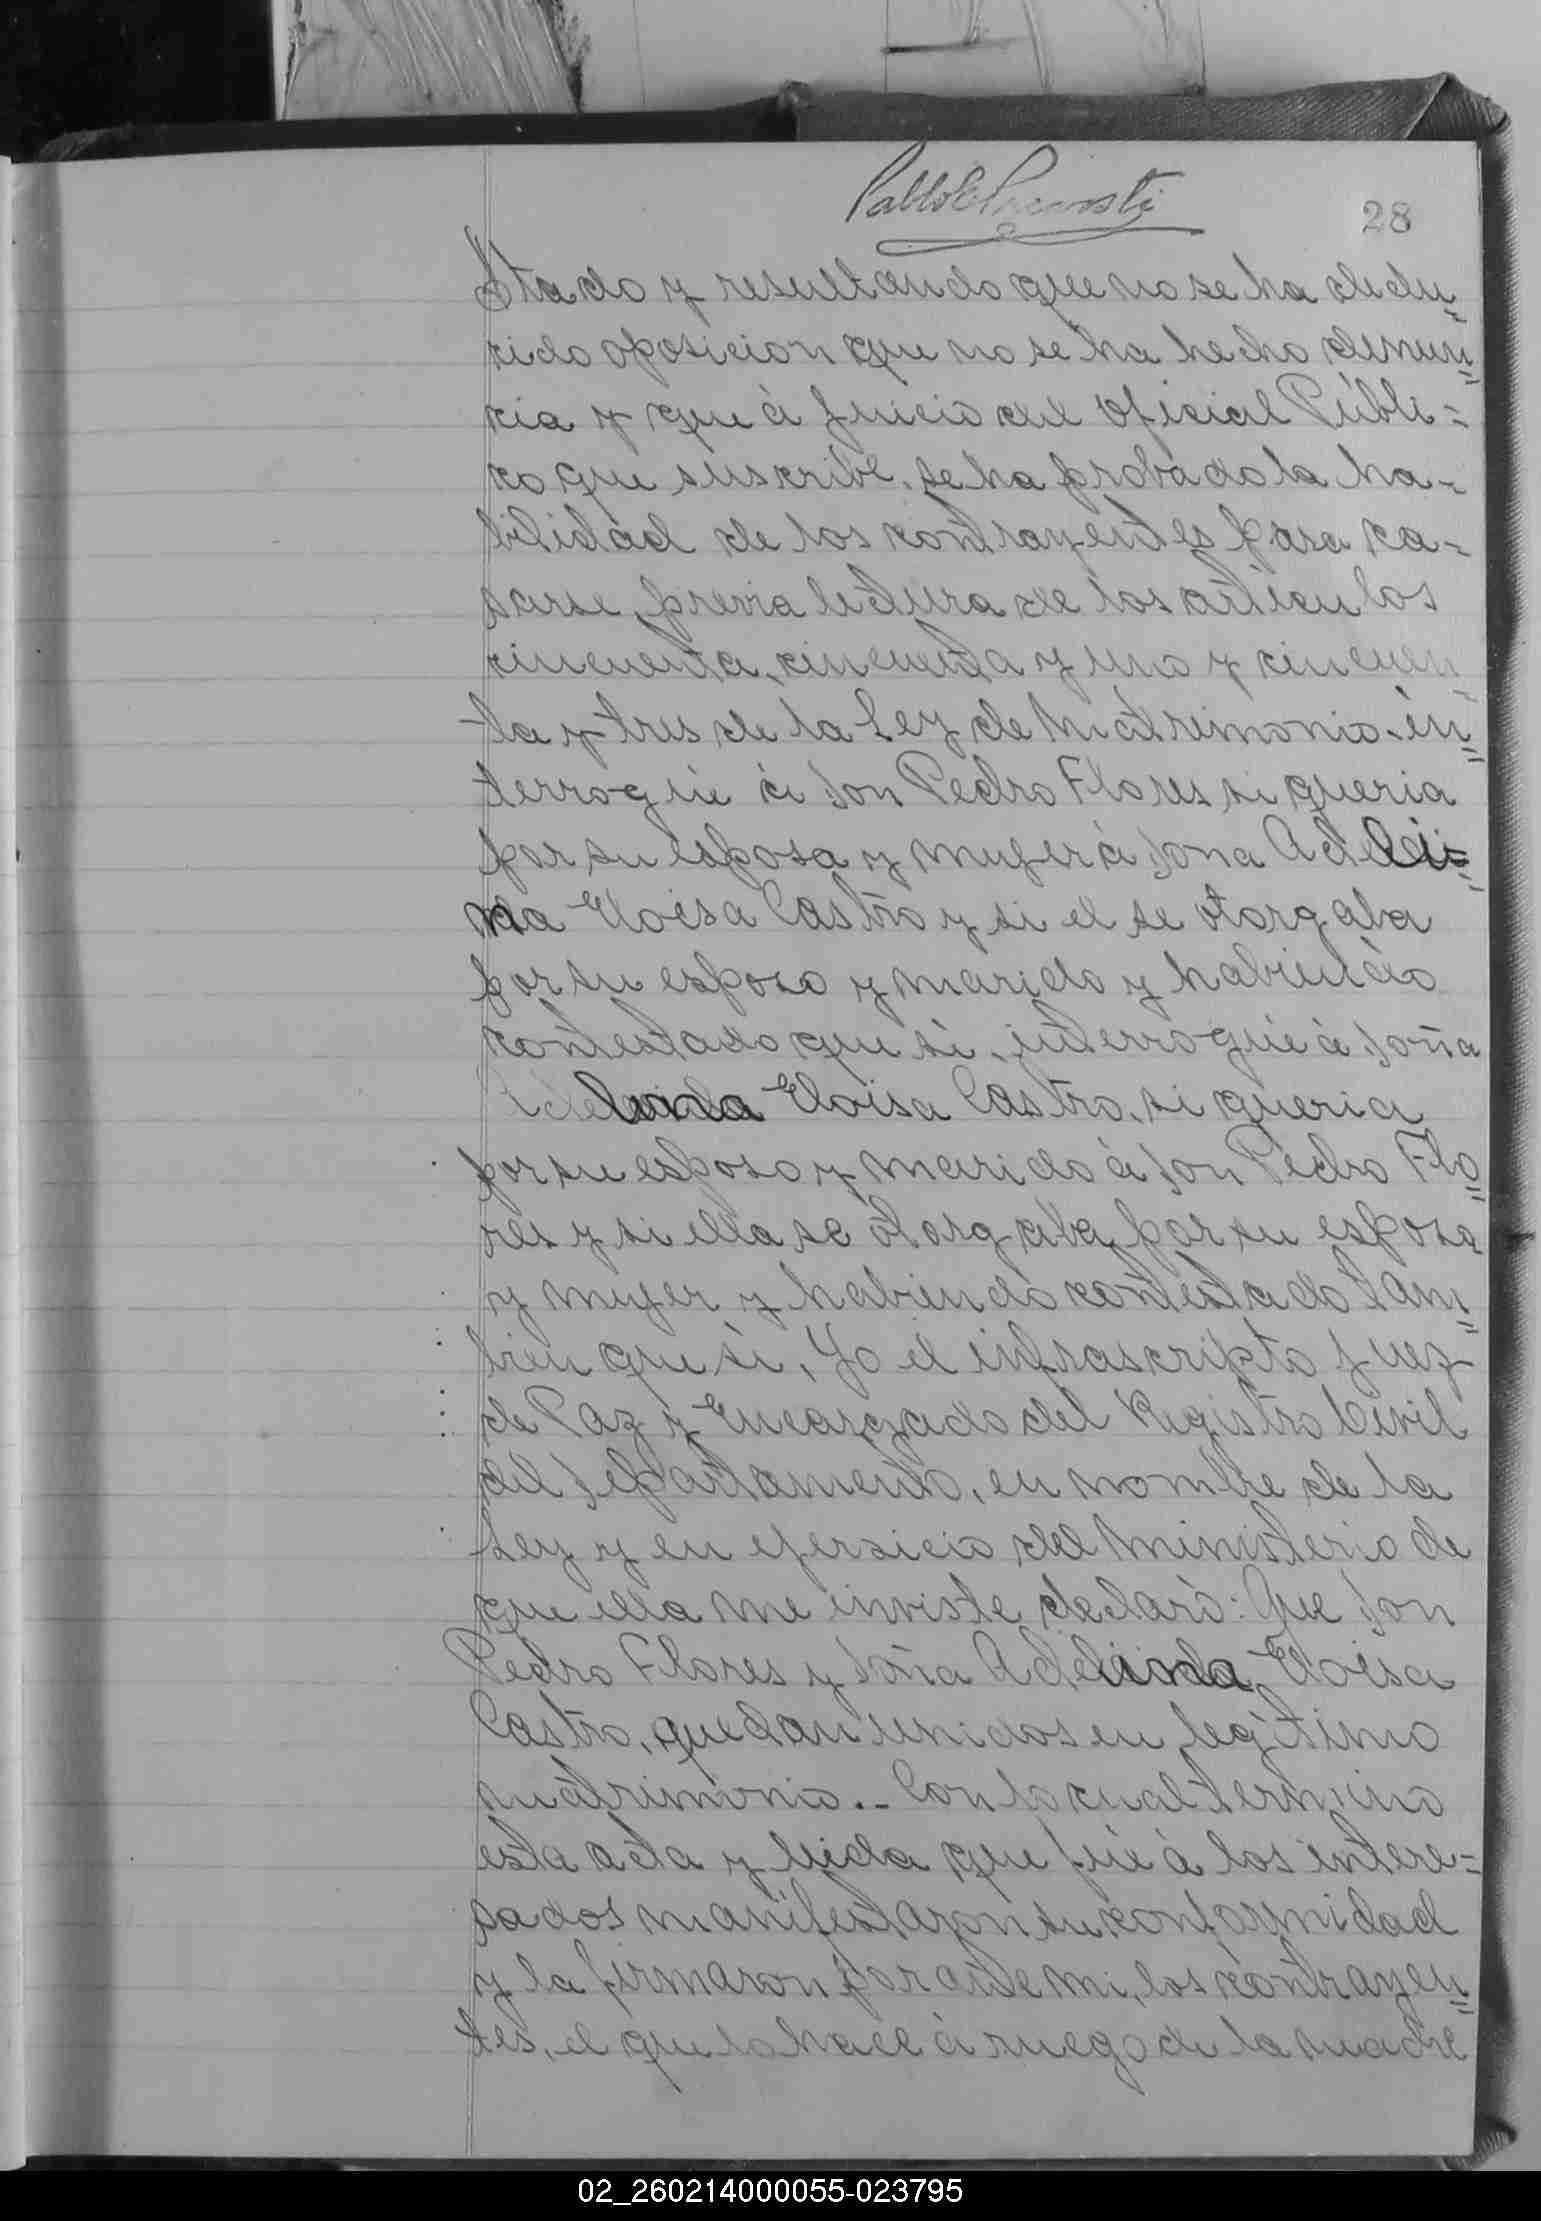 28
Stado y resultando que no se ha dedu=
cido oposicion que no se ha hecho denun=
cia y que á juicio del Oficial Públi=
co que suscribe, se ha probado la ha=
bilidad de los contrayentes para ca=
sarse, previa lectura de los articulos
cincuenta, cincuenta y uno y cincuen=
ta y tres de la Ley de Matrimonio. in=
terrogué á Don Pedro Flores si queria
por su esposa y mujer á Dona Adelin=
da Eloisa Castro y si el se otorgaba
por su esposo y marido y habiendo
contestado que si, interrogué á Doña
Adelinda Eloisa Castro, si queria
por su esposo y marido á Don Pedro Flo=
res y si ella se otorgaba por su esposa
y mujer y habiendo contestado tam=
bien que si, Yo el infrascripto Juez
de Paz y Encargado del Registro Civil
del Departamento, en nombre de la
Ley y en ejersicio del Ministerio de
que ella me inviste declaró: Que Don
Pedro Flores y Doña Adelinda Eloisa
Castro, quedan unidos en legitimo
matrimonio.- Con lo cual termino
esta acta y leida que fué á los intere=
sados manifestaron su conformidad
y la firmaron por ante mi, los contrayen=
tes, el que lo hace á ruego de la madre
02_260214000055-023795